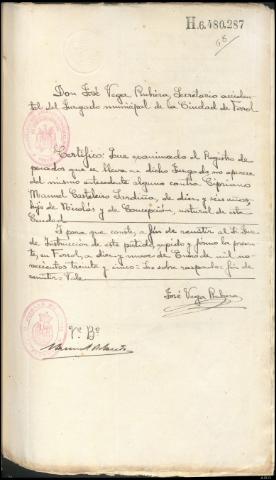 H.6.480.287
68
Don José Vega Rubiera, Secretario acciden-
tal del Juzgado municipal de la Ciudad de Ferrol
Certifico: Que examinado el Registro de
penados que se lleva en dicho Juzgado, no aparece
del mismo antecedente alguno contra Cipriano
Manuel Casteleiro Sardiña, de diez y seis años,
hijo de Nicolás y de Concepción, natural de esta
Ciudad
Y para que conste, a fin de remitir al Sr. Juez
de Instrucción de este partido, expido y firmo la presen-
te, en Ferrol, a diez y nueve de Enero de mil no-
vecientos treinta y cinco = Lo sobre raspado = fin de
remitir = Vale
José Vega Rubiera
Vº Bº